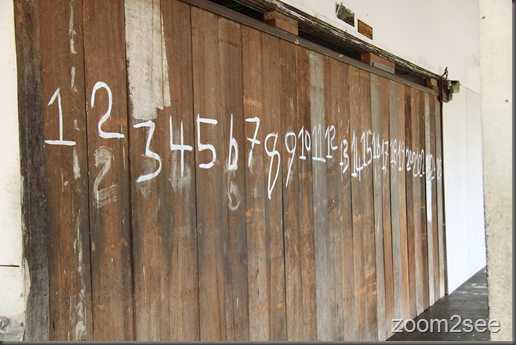 1 2 3 4 5 6 7 8 9 10 11 12 13 14 15 16 17 18 19 20 21 22
zoom2see